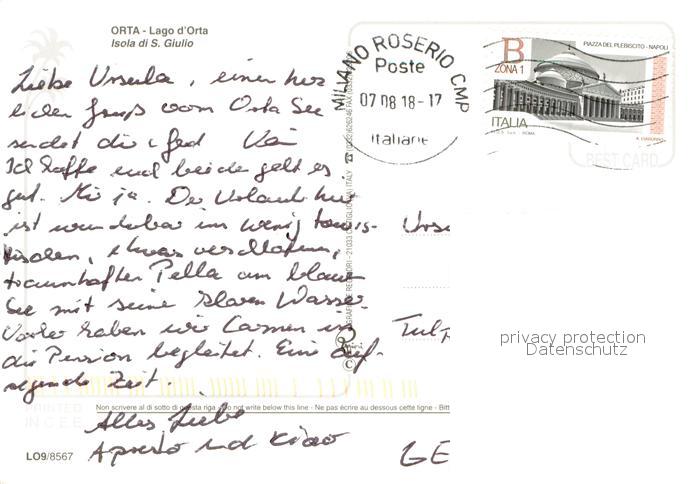 ORTA - Lago d'Orta
Isola di S. Giulio
Liebe Ursula, einen herz
lichen Gruß vom Orta See
sendet dir
Ich hoffe euch beiden geht es
gut. Mir ja. Der Urlaub hier
ist wunderbar im wenig touris-
tischen, etwas verschlafenen,
traumhaften Pella am blauen
See mit seinem klaren Wasser.
Vorher haben wir Carmen in
die Pension begleitet. Eine auf-
regende Zeit.
Alles Liebe
A presto und ciao
MILANO ROSERIO CMP
Poste
07 08 18-17
italiane
B
ZONA 1
PIAZZA DEL PLEBISCITO - NAPOLI
ITALIA
BEST CARD
21033 CITTIGLIO (VA) ITALY
Urs
Tulp
GE
privacy protection
Datenschutz
PRINTED
IN C.E.E.
Non scrivere al di sotto di questa riga - Do not write below this line - Ne pas écrire au dessous cette ligne - Bitt
LO9/8567